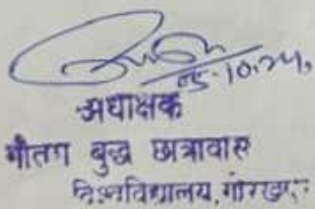 05.10.24,
अधीक्षक
गौतम बुद्ध छात्रावास
विश्वविद्यालय, गोरख